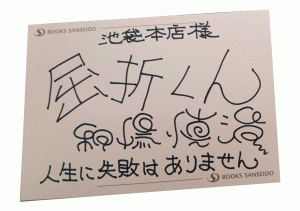 BOOKS SANSEIDO
BOOKS SANSEIDO
池袋本店様
屈折くん
和嶋慎治
人生に失敗はありません
BOOKS SANSEIDO